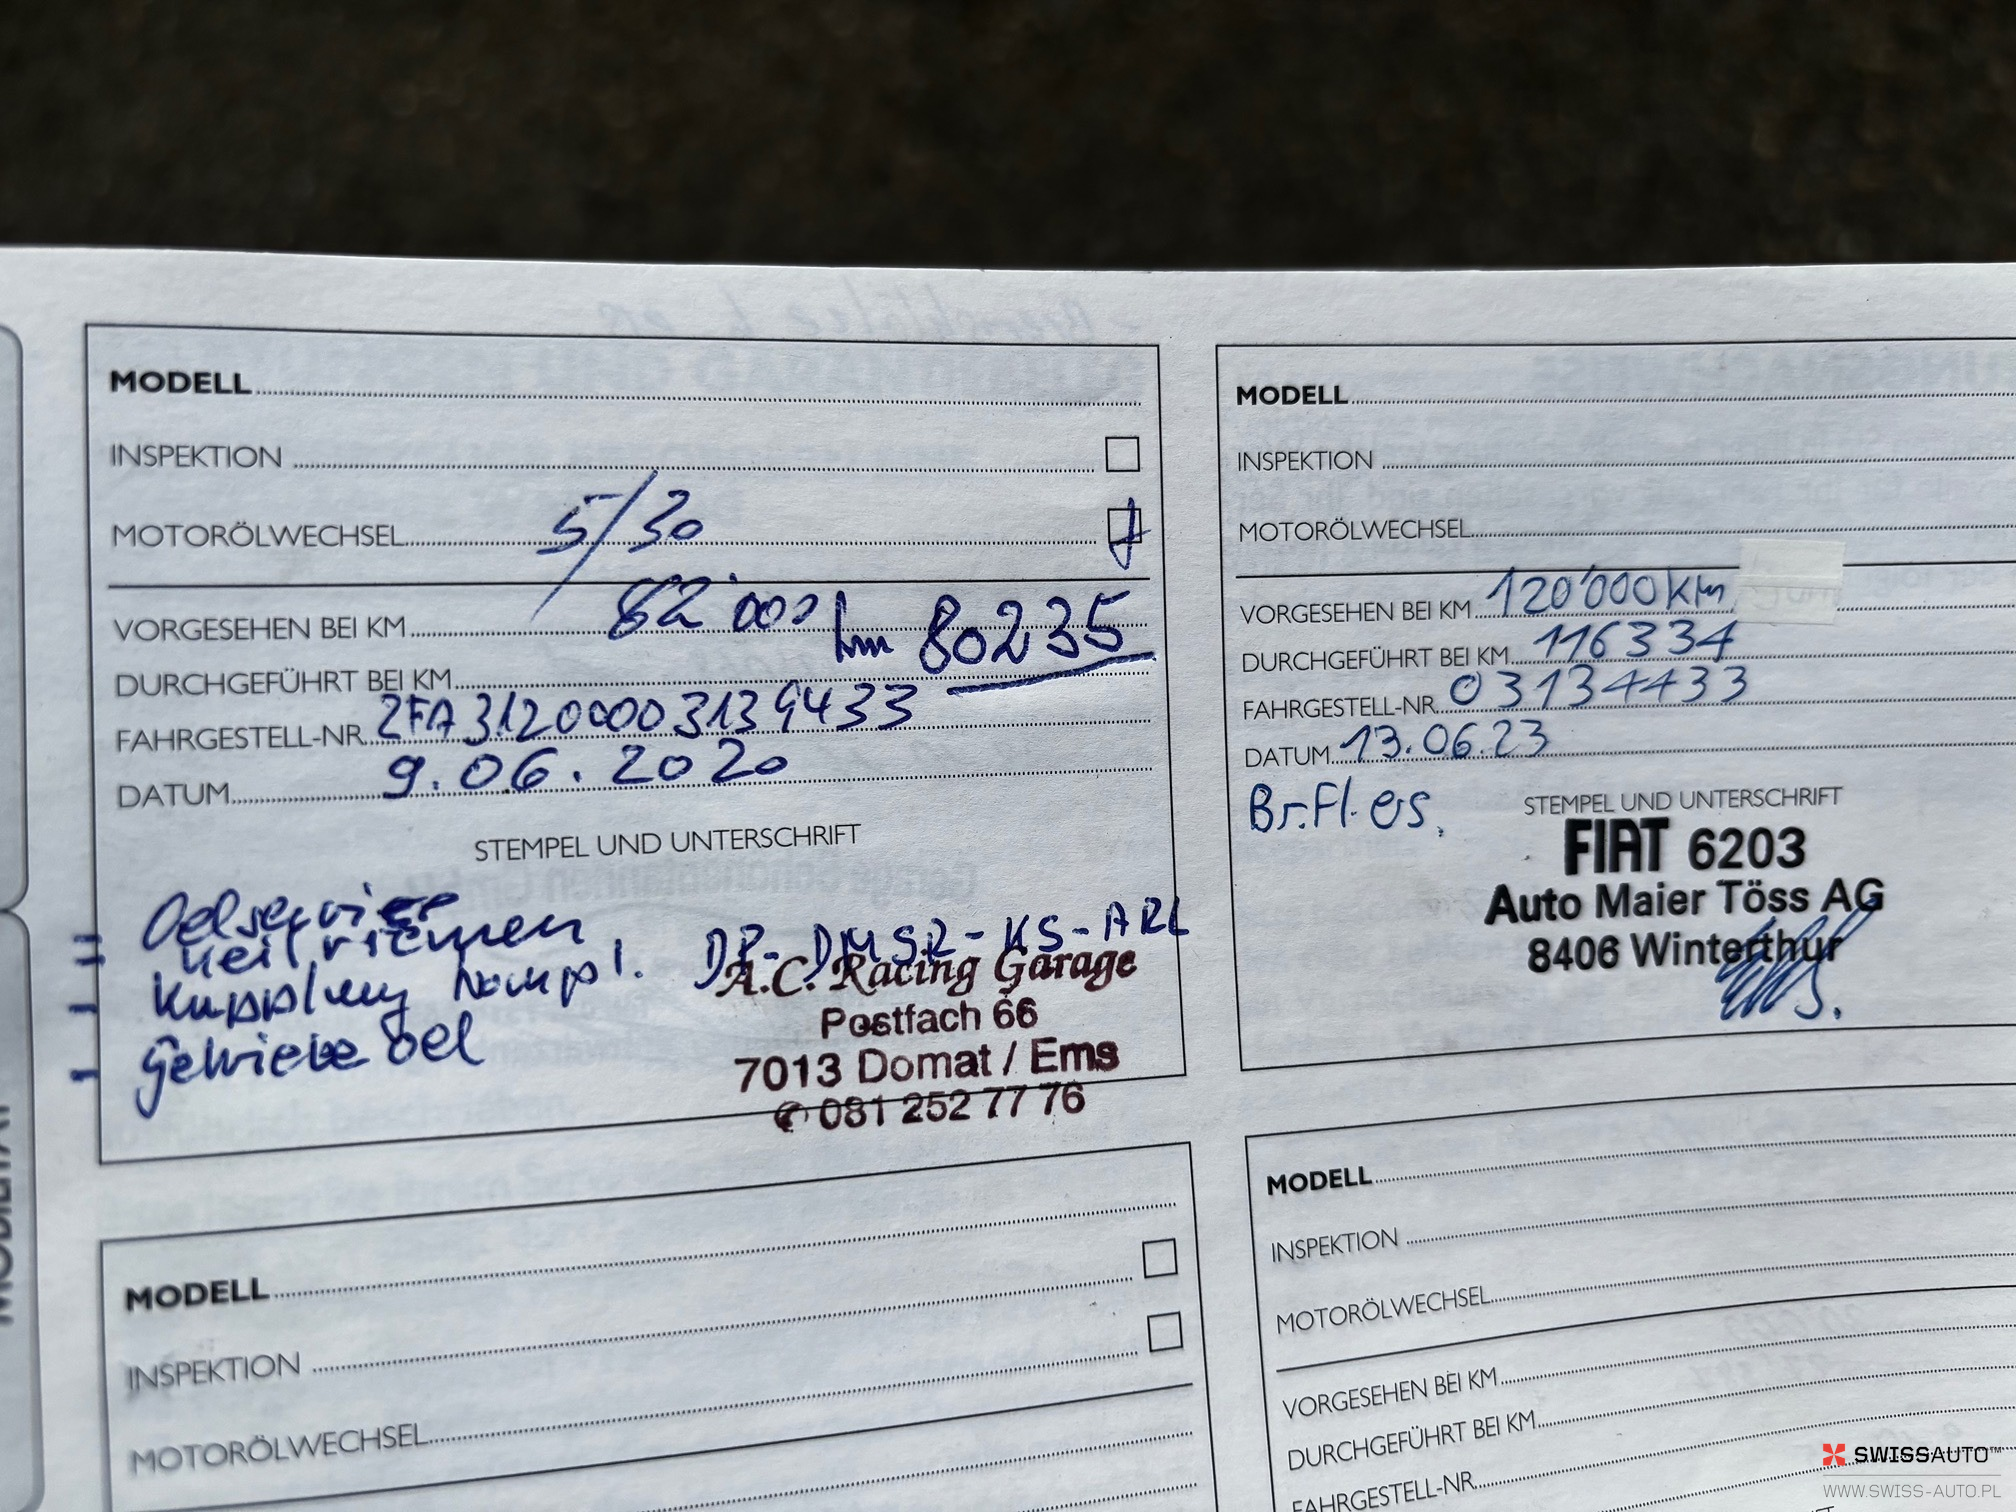 MODELL
INSPEKTION
MOTORÖLWECHSEL 5/30
VORGESEHEN BEI KM 82'000
DURCHGEFÜHRT BEI KM km 80235
FAHRGESTELL-NR. ZFA31200003139433
DATUM 9.06.2020
STEMPEL UND UNTERSCHRIFT
Oelservice
Keilriemen
Kupplung kompl. DP-DMSR-KS-ARL
Getriebe oel
A.C. Racing Garage
Postfach 66
7013 Domat / Ems
✆ 081 252 77 76
MODELL
INSPEKTION
MOTORÖLWECHSEL
VORGESEHEN BEI KM 120'000km
DURCHGEFÜHRT BEI KM 116334
FAHRGESTELL-NR. 03134433
DATUM 13.06.23
Br.Fl. ers.
STEMPEL UND UNTERSCHRIFT
FIAT 6203
Auto Maier Töss AG
8406 Winterthur
MODELL
INSPEKTION
MOTORÖLWECHSEL
MODELL
INSPEKTION
MOTORÖLWECHSEL
VORGESEHEN BEI KM
DURCHGEFÜHRT BEI KM
FAHRGESTELL-NR.
SWISSAUTO™
WWW.SWISS-AUTO.PL